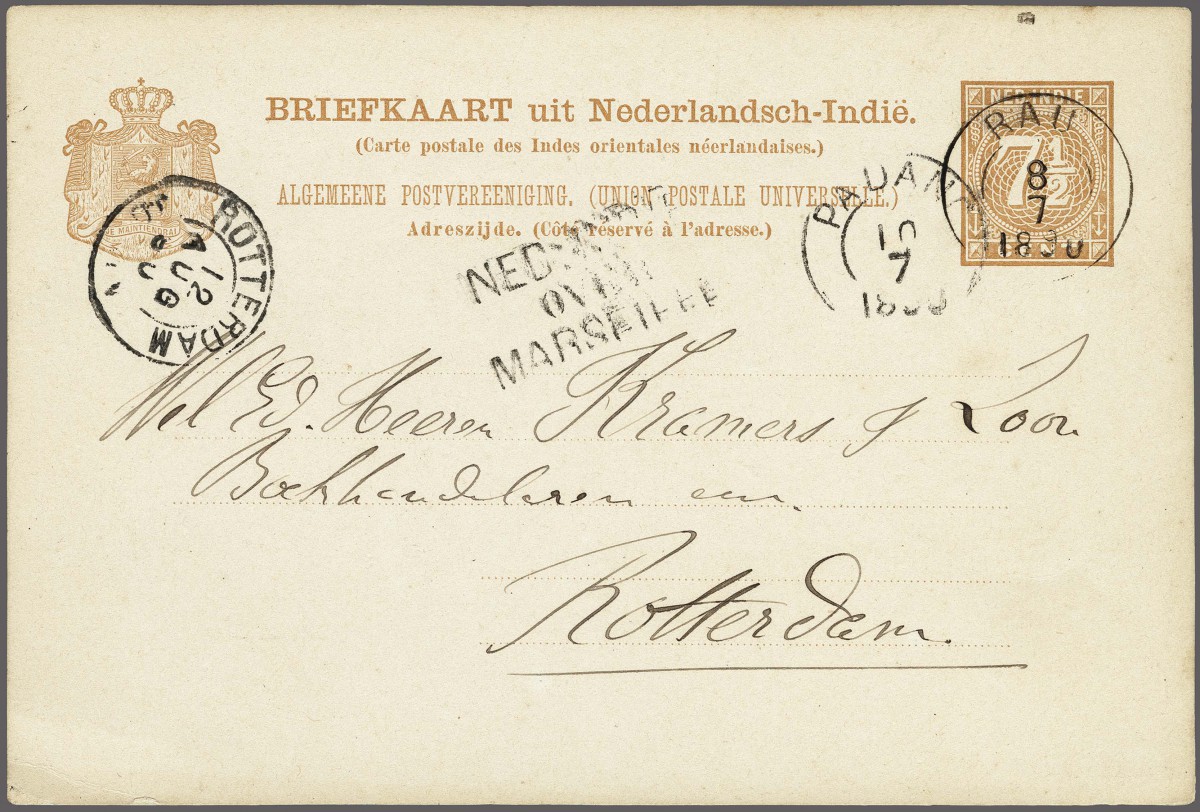 BRIEFKAART uit Nederlandsch-Indië.
(Carte postale des Indes orientales néerlandaises.)
ALGEMEENE POSTVEREENIGING. (UNION POSTALE UNIVERSELLE.)
Adreszijde. (Côté réservé à l'adresse.)
JE MAINTIENDRAI
NED-INDIE
7½
RAU
8
7
1890
PADANG
10
7
ROTTERDAM
12
AUG
NED-INDIE
OVER
MARSEILLE
Wel Ed. Heeren Kramers & Loon
Boekhandelaren
Rotterdam.